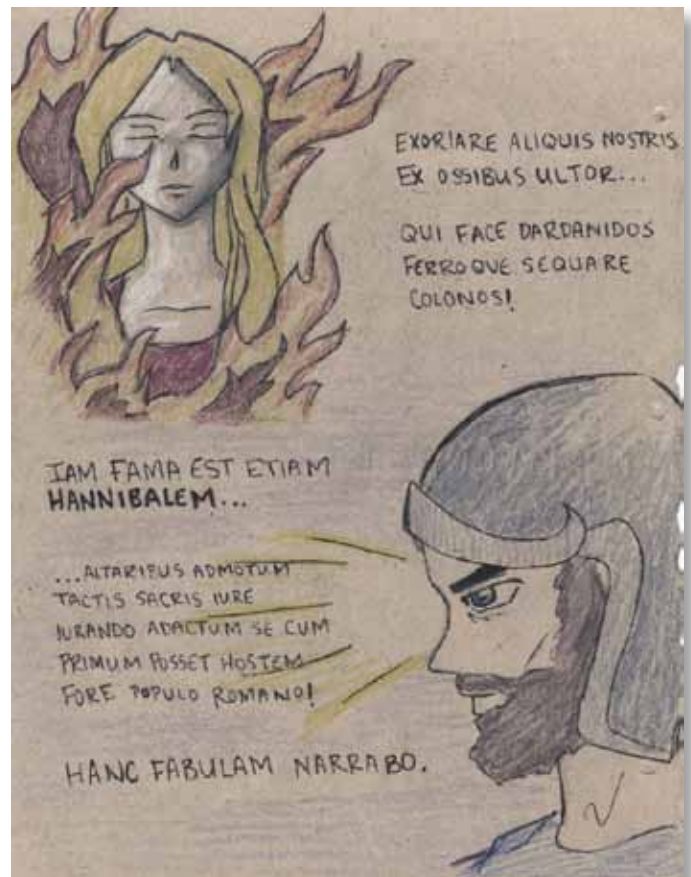 EXORIARE ALIQUIS NOSTRIS
EX OSSIBUS ULTOR...
QUI FACE DARDANIDOS
FERROQUE SEQUARE
COLONOS!
IAM FAMA EST ETIAM
HANNIBALEM...
...ALTARIBUS ADMOTUM
TACTIS SACRIS IURE
IURANDO ADACTUM SE CUM
PRIMUM POSSET HOSTEM
FORE POPULO ROMANO!
HANC FABULAM NARRABO.